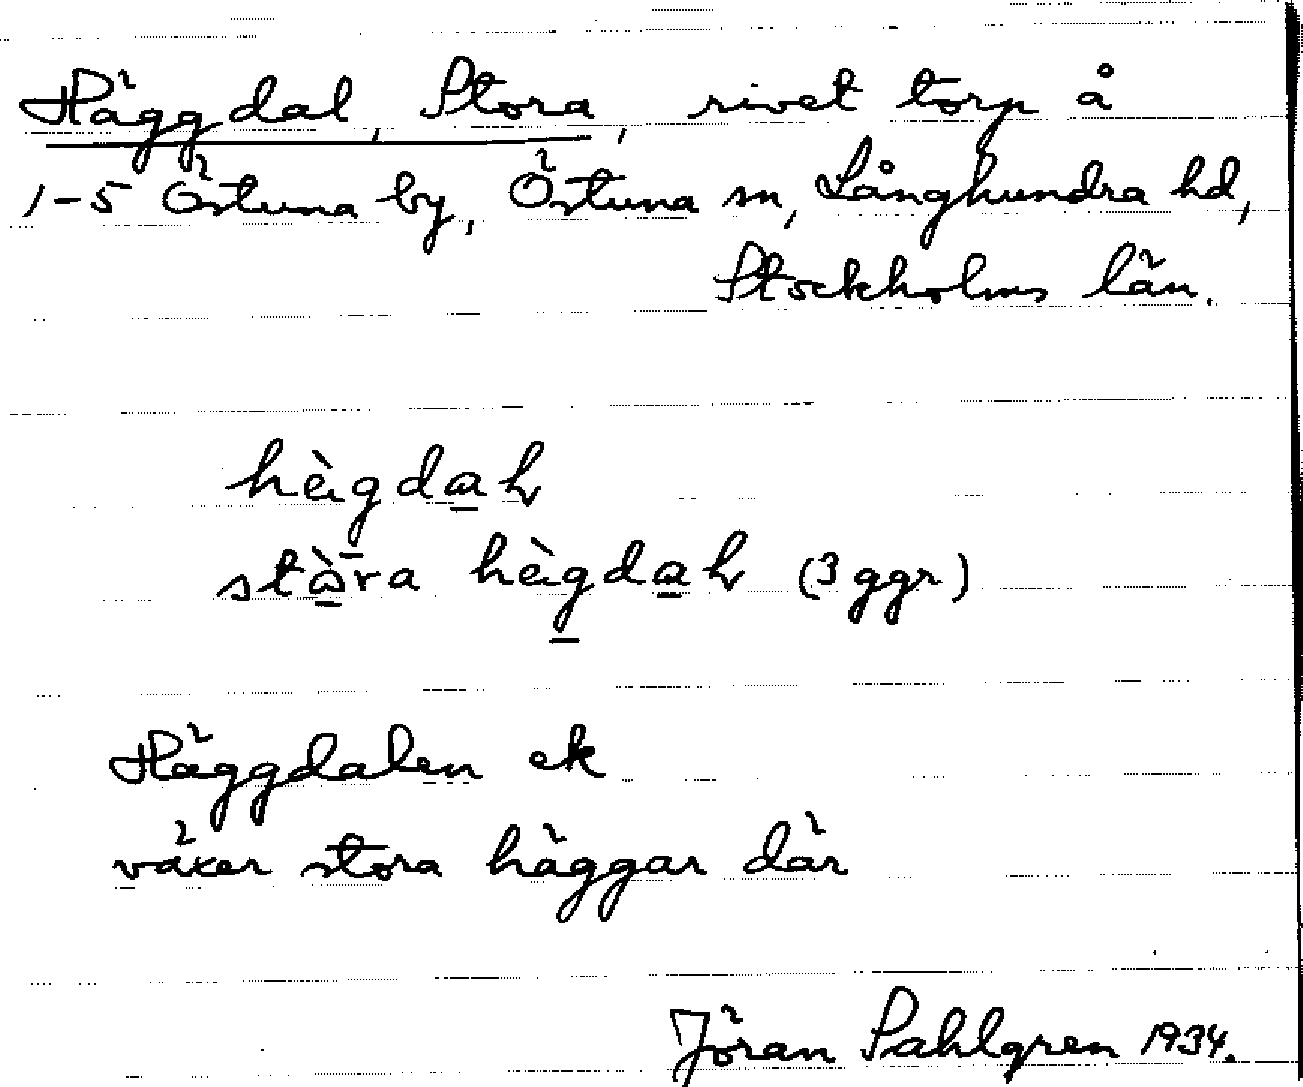 Häggdal, Stora, rivet torp å
1-5 Östuna by, Östuna sn, Långhundra hd,
Stockholms län.
hä̀gda̱h
stà̱ra hä̀g̱da̱h (3 ggr)
Häggdalen ek
växer stora häggar där
Jöran Sahlgren 1934.